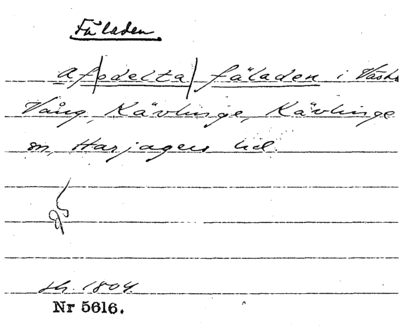 Fäladen
Afsdelta fäladen i Västra
Vång, Kävlinge, Kävlinge
sn, Harjagers hd.
sk. 1804
Nr 5616.